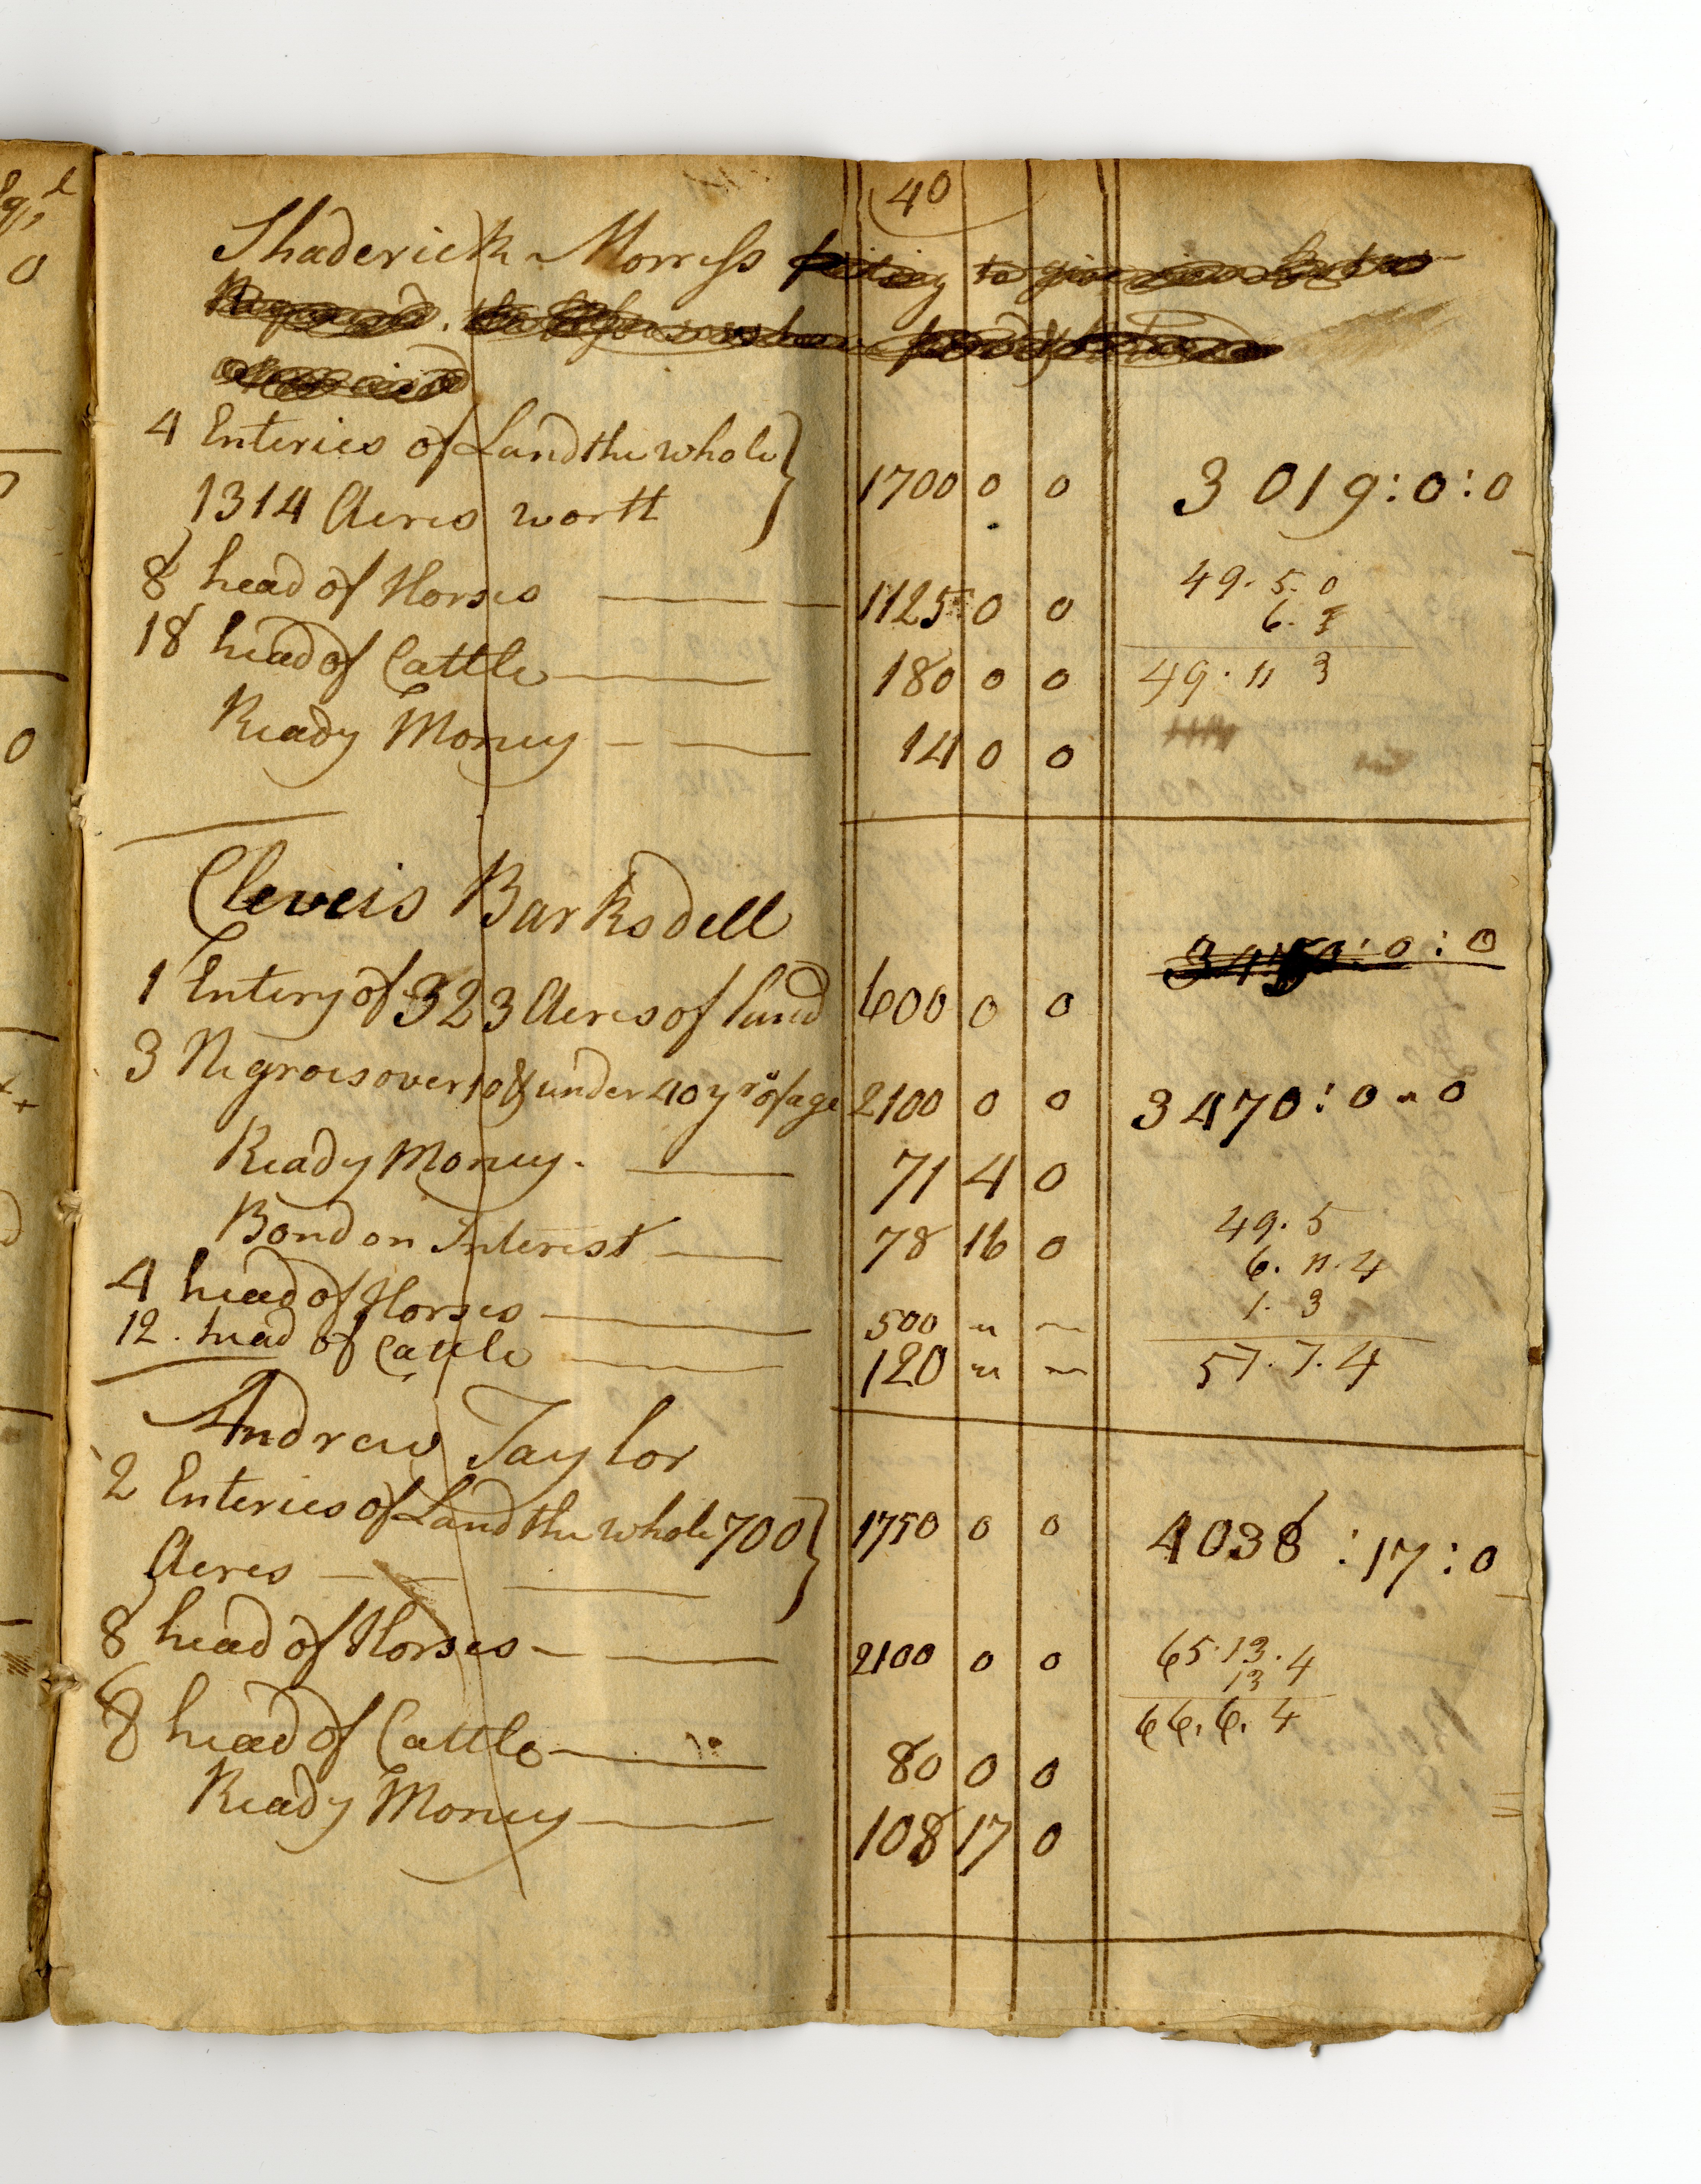 40
Shaderick Morress to give
4 Enteries of Land the whole
1314 Acres worth 1700 0 0 3019:0:0
8 head of Horses 1125 0 0 49. 5. 0
6.
18 head of Cattle 180 0 0 49. 11 3
Ready Money 14 0 0
Cleveis Barksdell
3450:0:0
1 Entery of 323 Acres of land 600 0 0
3 Negroes over 10 & under 40 yrs of age 2100 0 0 3470:0-0
Ready Money. 71 4 0
Bond on Interest 78 16 0 49. 5
6. 11. 4
4 head of Horses 500 " " 1. 3
12. head of Cattle 120 " " 57. 7. 4
Andrew Taylor
2 Enteries of Land the whole 700 1750 0 0 4038:17:0
Acres
8 head of Horses 2100 0 0 65.13.4
13 4
66. 6. 4
8 head of Cattle 80 0 0
Ready Money 108 17 0